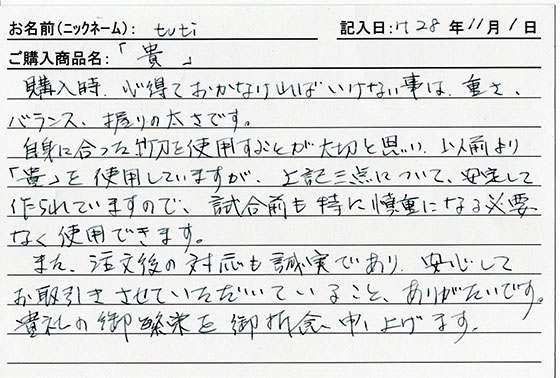 お名前(ニックネーム): tuti 記入日:H28年11月1日
ご購入商品名:「貴」
購入時、心得ておかなければいけない事は、重さ、
バランス、握りの太さです。
自身に合った竹刀を使用することが大切と思い、以前より
「貴」を使用していますが、上記三点について、安定して
作られていますので、試合前も特に慎重になる必要
なく使用できます。
また、注文後の対応も誠実であり、安心して
お取引きさせていただいていること、ありがたいです。
貴社の御繁栄を御祈念申し上げます。